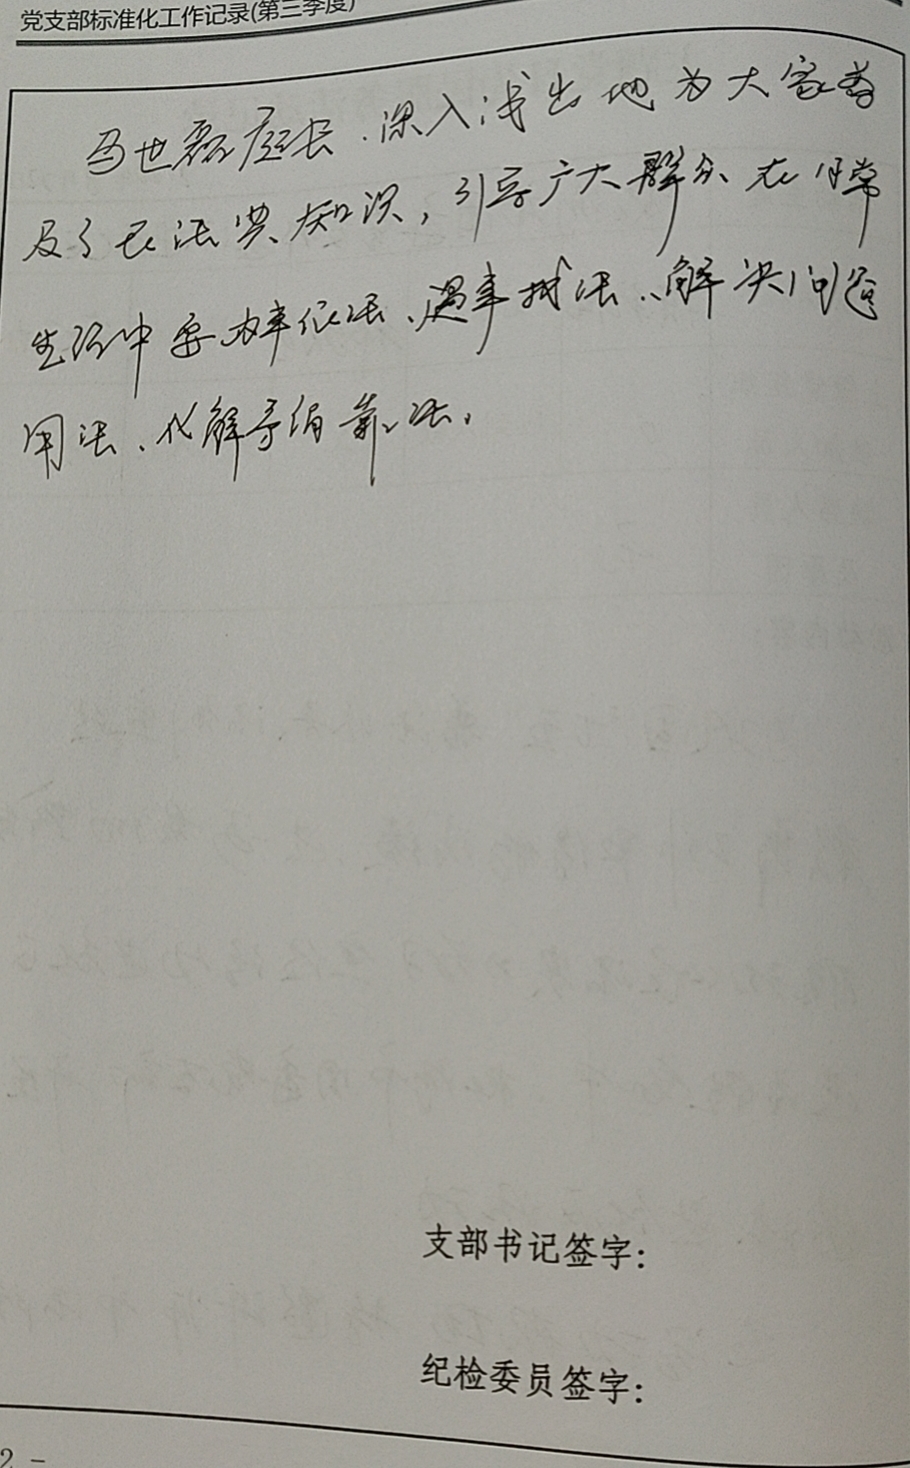 党支部标准化工作记录(第三季度)
马世磊庭长、深入浅出地为大家普
及了民法典知识，引导广大群众在日常
生活中要办事依法、遇事找法、解决问题
用法、化解矛盾靠法。
支部书记签字：
纪检委员签字：
2 -